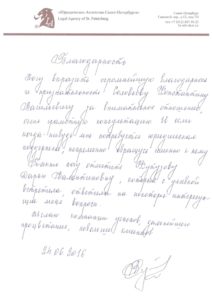 «Юридическое Агентство Санкт-Петербурга»
Legal Agency of St. Petersburg
Санкт-Петербург
Благодарность
Хочу выразить огромнейшую благодарность
и признательность Соловьёву Константину
Васильевичу за внимательное отношение,
очень грамотную консультацию. И если
когда-нибудь мне потребуется юридическая
поддержка, непременно обращусь именно к нему
Также хочу отметить
Дарью Валентиновну, которая с улыбкой
встретила, ответила на некоторые интересую-
щие меня вопросы.
Желаю компании успехов, дальнейшего
процветания, побольше клиентов
24.06.2016